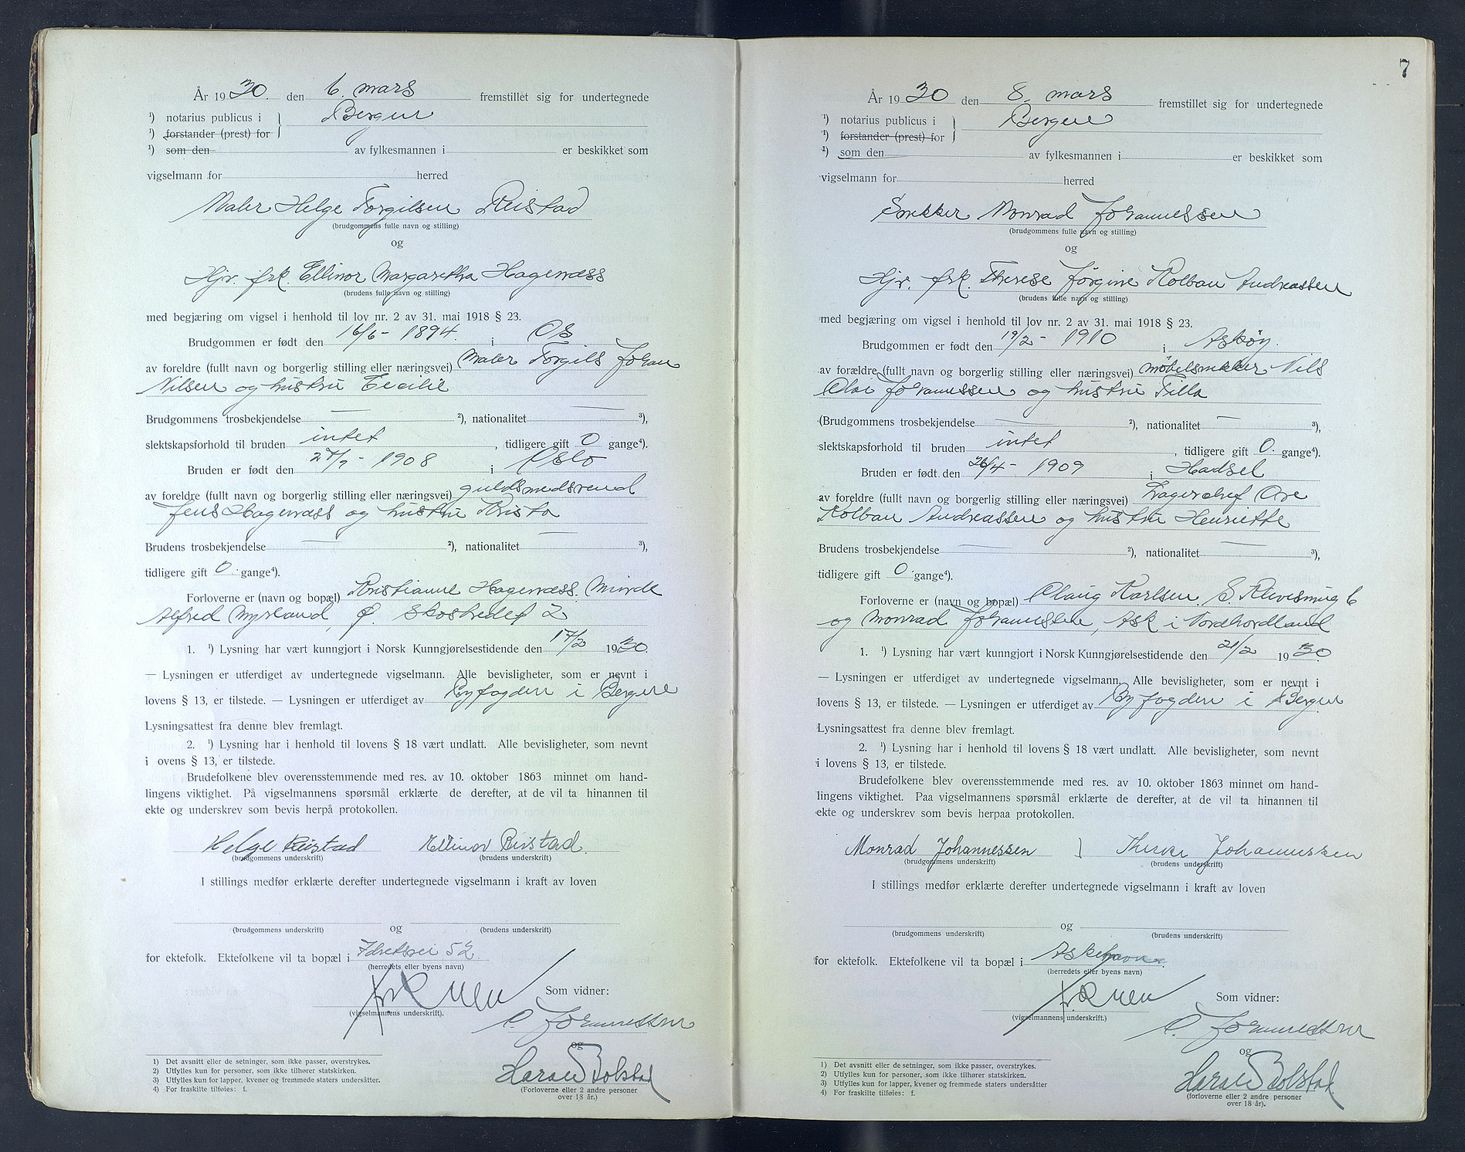 År 1930. den 6. mars fremstillet sig for undertegnede
¹) notarius publicus i Bergen
¹) forstander (prest) for
¹) som den av fylkesmannen i er beskikket som
vigselmann for herred
Maler Helge Torgilsen Reistad
(brudgommens fulle navn og stilling)
og
Hjv. frk. Ellinor Margaretha Hagenæss
(brudens fulle navn og stilling)
med begjæring om vigsel i henhold til lov nr. 2 av 31. mai 1918 § 23.
Brudgommen er født den 16/6- 1894. i Os
av foreldre (fullt navn og borgerlig stilling eller næringsvei) Maler Torgils Johan
Nilsen og hustru Cecilie
Brudgommens trosbekjendelse — ²), nationalitet — ³),
slektskapsforhold til bruden intet, tidligere gift 0 gange⁴).
Bruden er født den - 1908 i Oslo
av foreldre (fullt navn og borgerlig stilling eller næringsvei) guldsmedsvend
Jens Hagenæss og hustru Krista
Brudens trosbekjendelse — ²), nationalitet — ³),
tidligere gift 0 gange⁴).
Forloverne er (navn og bopæl) Kristianne Hagenæss, Minde
Alfred Myrland, Ø. Skostredet 2
1. ¹) Lysning har vært kunngjort i Norsk Kunngjørelsestidende den 17/2 1930.
— Lysningen er utferdiget av undertegnede vigselmann. Alle bevisligheter, som er nevnt i
lovens § 13, er tilstede. — Lysningen er utferdiget av Byfogden i Bergen
Lysningsattest fra denne blev fremlagt.
2. ¹) Lysning har i henhold til lovens § 18 vært undlatt. Alle bevisligheter, som nevnt
i ovens § 13, er tilstede.
Brudefolkene blev overensstemmende med res. av 10. oktober 1863 minnet om hand-
lingens viktighet. På vigselmannens spørsmål erklærte de derefter, at de vil ta hinannen til
ekte og underskrev som bevis herpå protokollen.
Helge Reistad Ellinor Reistad.
(brudgommens underskrift) (brudens underskrift)
I stillings medfør erklærte derefter undertegnede vigselmann i kraft av loven
og
(brudgommens underskrift) (brudens underskrift)
for ektefolk. Ektefolkene vil ta bopæl i Idrettsvei 52
(herredets eller byens navn)
Som vidner:
(vigselmannens underskrift).
C. Johannessen
og
Harald Bolstad
(Forloverne eller 2 andre personer
over 18 år.)
1) Det avsnitt eller de setninger, som ikke passer, overstrykes.
2) Utfylles kun for personer, som ikke tilhører statskirken.
3) Utfylles kun for lapper, kvener og fremmede staters undersåtter.
4) For fraskilte tilføies: f.
7
År 1930 den 8. mars fremstillet sig for undertegnede
¹) notarius publicus i Bergen
¹) forstander (prest) for
¹) som den av fylkesmannen i er beskikket som
vigselmann for herred
Snekker Monrad Johannessen
(brudgommens fulle navn og stilling)
og
Hjv. frk. Therese Jørgine Kolban Andreassen
(brudens fulle navn og stilling)
med begjæring om vigsel i henhold til lov nr. 2 av 31. mai 1918 § 23.
Brudgommen er født den 19/2- 1910 i Askøy.
av forældre (fullt navn og borgerlig stilling eller næringsvei) møbelsnekker Nils
Olai Johannessen og hustru Tilla
(Brudgommens trosbekjendelse — ²), nationalitet — ³),
slektskapsforhold til bruden intet, tidligere gift 0. gange⁴).
Bruden er født den 26/4- 1909 i Hadsel
av foreldre (fullt navn og borgerlig stilling eller næringsvei) Lagerchef Ove
Kolban Andreassen og hustru Henriette
Brudens trosbekjendelse — ²), nationalitet — ³),
tidligere gift 0 gange⁴).
Forloverne er (navn og bopæl) Olaug Karlsen, S. Kleivesmug 6
og Monrad Johannessen, Ask i Nordhordland
1. ¹) Lysning har vært kunngjort i Norsk Kunngjørelsestidende den 21/2 1930
— Lysningen er utferdiget av undertegnede vigselmann. Alle bevisligheter, som er nevnt i
lovens § 13, er tilstede. — Lysningen er utferdiget av Byfogden i Bergen
Lysningsattest fra denne blev fremlagt.
2. ¹) Lysning har i henhold til lovens § 18 vært undlatt. Alle bevisligheter, som nevnt
i lovens § 13, er tilstede.
Brudefolkene blev overensstemmende med res. av 10. oktober 1863 minnet om hand-
lingens viktighet. Paa vigselmannens spørsmål erklærte de derefter, at de vil ta hinannen til
ekte og underskrev som bevis herpaa protokollen.
Monrad Johannessen Therese Johannessen
(brudgommens underskrift) (brudens underskrift)
I stillings medfør erklærte derefter undertegnede vigselmann i kraft av loven
og
(brudgommens underskrift) (brudens underskrift)
for ektefolk. Ektefolkene vil ta bopæl i Askehavn.
(herredets eller byens navn)
Som vidner:
(vigselmannens underskrift.)
C. Johannessen
og
Harald Bolstad
(forloverne eller 2 andre personer
over 18 år).
1) Det avsnitt eller de setninger, som ikke passer, overstrykes.
2) Utfylles kun for personer, som ikke tilhører statskirken.
3) Utfylles kun for lapper, kvener og fremmede staters undersåtter
4) For fraskilte tilføies: f.